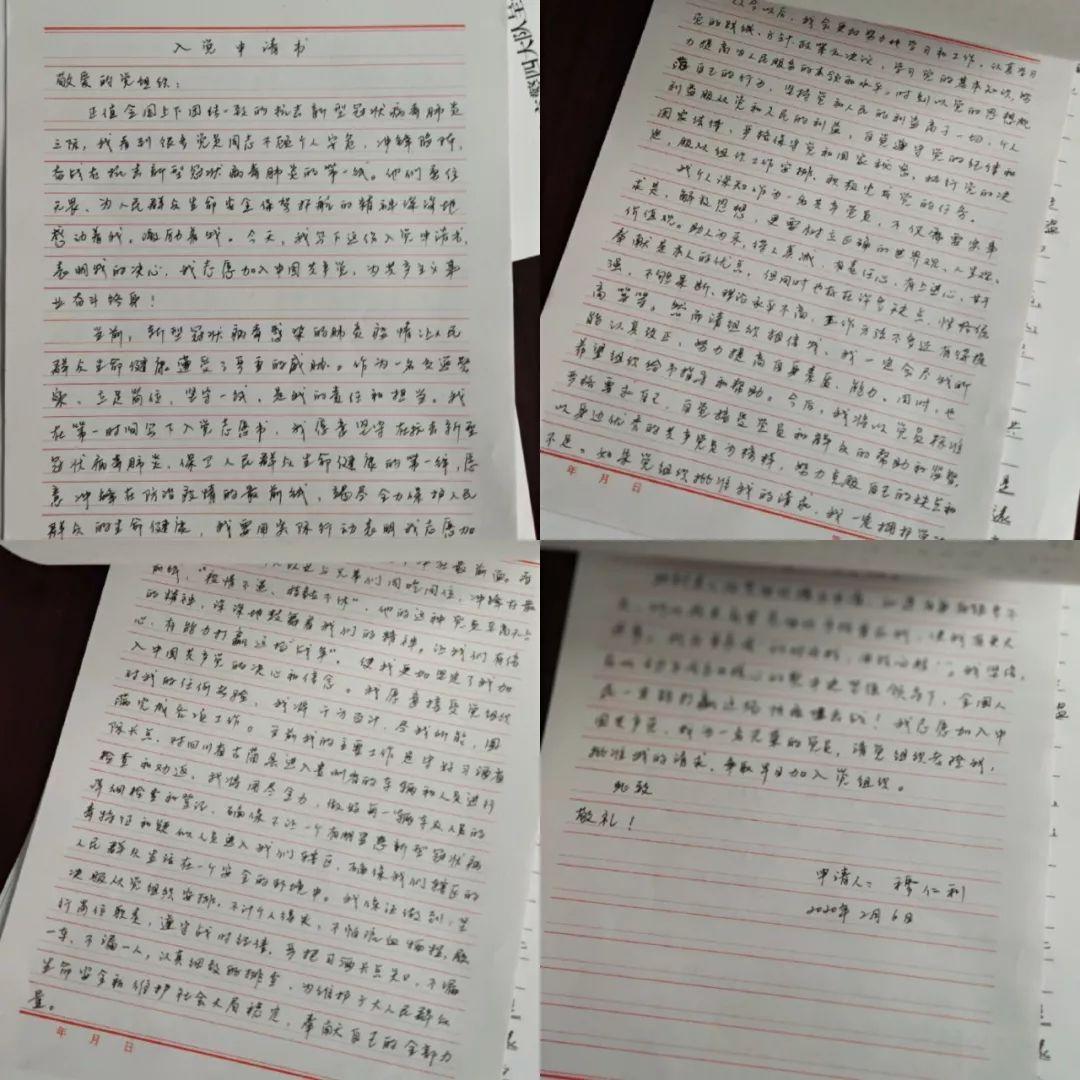 入党申请书
敬爱的党组织：
正值全国上下团结一致的抗击新型冠状病毒肺炎
之际，我看到很多党员同志不顾个人安危，冲锋陷阵，
奋战在抗击新型冠状病毒肺炎的第一线。他们责任
无畏、为人民群众生命安全保驾护航的精神深深地
感动着我，激励着我。今天，我写下这份入党申请书，
表明我的决心，我志愿加入中国共产党，为共产主义事
业奋斗终身！
当前，新型冠状病毒感染的肺炎疫情让人民
群众生命健康遭受了严重的威胁。作为一名交巡警
察，立足岗位，坚守一线，是我的责任和担当。我
在第一时间写下入党志愿书，我愿意坚守在抗击新型
冠状病毒肺炎，保卫人民群众生命健康的第一线，愿
意冲锋在防治疫情的最前线，竭尽全力保护人民
群众的生命健康，我要用实际行动表明我志愿加
从今以后，我会更加努力地学习和工作，认真学习
党的路线、方针、政策及决议，学习党的基本知识，努
力提高为人民服务的本领和水平。时刻以党的思想规
范自己的行为，坚持党和人民的利益高于一切，个人
利益服从党和人民的利益，自觉遵守党的纪律和
国家法律，严格保守党和国家秘密，执行党的决
定，服从组织工作安排，积极完成党的任务。
我个人深知作为一名共产党员，不仅需要实事
求是，解放思想，更需树立正确的世界观、人生观、
价值观。助人为乐、待人真诚、有责任心、有上进心、甘于
奉献是本人的优点，但同时也存在许多缺点，性格倔
强，不够果断，理论水平不高，工作方法不多还有待提
高等等。然而请组织相信我，我一定会尽我所
能认真改正，努力提高自身素质、能力。同时，也
希望组织给予指导和帮助。今后，我将以党员标准
严格要求自己，自觉接受党员和群众的帮助和监督，
以身边优秀的共产党员为榜样，努力克服自己的缺点和
不足。如果党组织批准我的请求，我一定拥护党
年 月 日
兄弟们同吃同住，冲锋在最
前线，“疫情不退，持续不休”，他的这种党员至高无上
的精神，深深地鼓舞着我们的精神。让我们有信
心、有能力打赢这场“战争”。使我更加坚定了我加
入中国共产党的决心和信念。我愿意接受党组织
对我的任何考验，我将千方百计，尽我所能，圆
满完成各项工作。当前我的主要工作是守好习酒省
际卡点，对四川省古蔺县进入贵州省的车辆和人员进行
检查和劝返，我将用尽全力，做好每一辆车及人员的
详细检查和登记，确保不让一个有携带患新型冠状病
毒特征和疑似人员进入我们辖区，确保我们辖区的
人民群众生活在一个安全的环境中。我保证做到：坚
决服从党组织安排，不计个人得失，不怕流血牺牲，履
行岗位职责，遵守战时纪律，严把习酒卡点关口，不漏
一车、不漏一人，认真细致的排查，为维护广大人民群众
生命安全和维护社会大局稳定，奉献自己的全部力
量。
年 月 日
民一定能打赢这场
！我志愿加入中
国共产党，成为一名光荣的党员，请党组织考验我，
批准我的请求，争取早日加入党组织。
此致
敬礼！
申请人：穆仁利
2020年2月6日